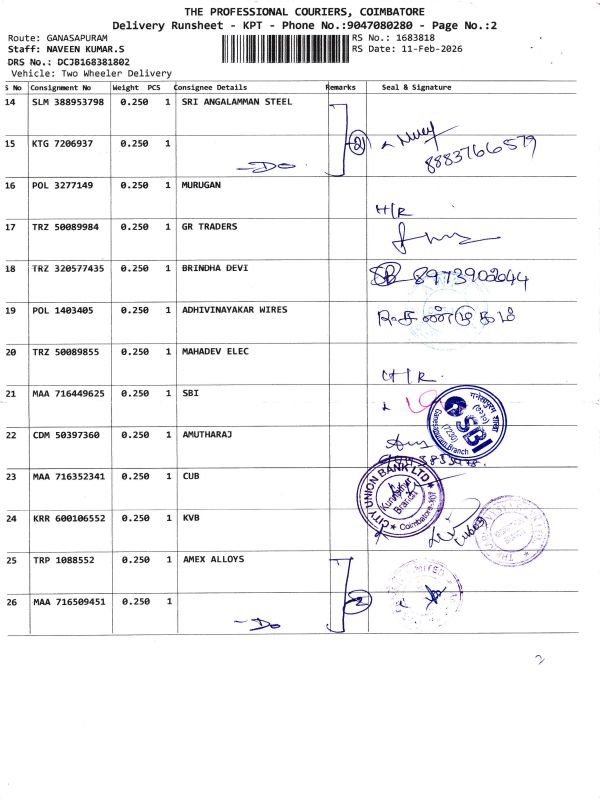 THE PROFESSIONAL COURIERS, COIMBATORE
Delivery Runsheet - KPT - Phone No.:9047080280 - Page No.:2
Route: GANASAPURAM
RS No.: 1683818
Staff: NAVEEN KUMAR.S
RS Date: 11-Feb-2026
DRS No.: DCJB168381802
Vehicle: Two Wheeler Delivery
S No Consignment No Weight PCS Consignee Details Remarks Seal & Signature
14 SLM 388953798 0.250 1 SRI ANGALAMMAN STEEL
15 KTG 7206937 0.250 1
-Do 2 8883766579
16 POL 3277149 0.250 1 MURUGAN
H/R
17 TRZ 50089984 0.250 1 GR TRADERS
18 TRZ 320577435 0.250 1 BRINDHA DEVI
SB 8973902044
19 POL 1403405 0.250 1 ADHIVINAYAKAR WIRES
R.சண்முகம்
20 TRZ 50089855 0.250 1 MAHADEV ELEC
H/R
21 MAA 716449625 0.250 1 SBI
SBI
(7230)
Branch
22 CDM 50397360 0.250 1 AMUTHARAJ
23 MAA 716352341 0.250 1 CUB
CITY UNION BANK LTD
Branch
Coimbatore
24 KRR 600106552 0.250 1 KVB
25 TRP 1088552 0.250 1 AMEX ALLOYS
26 MAA 716509451 0.250 1
-Do 2
2